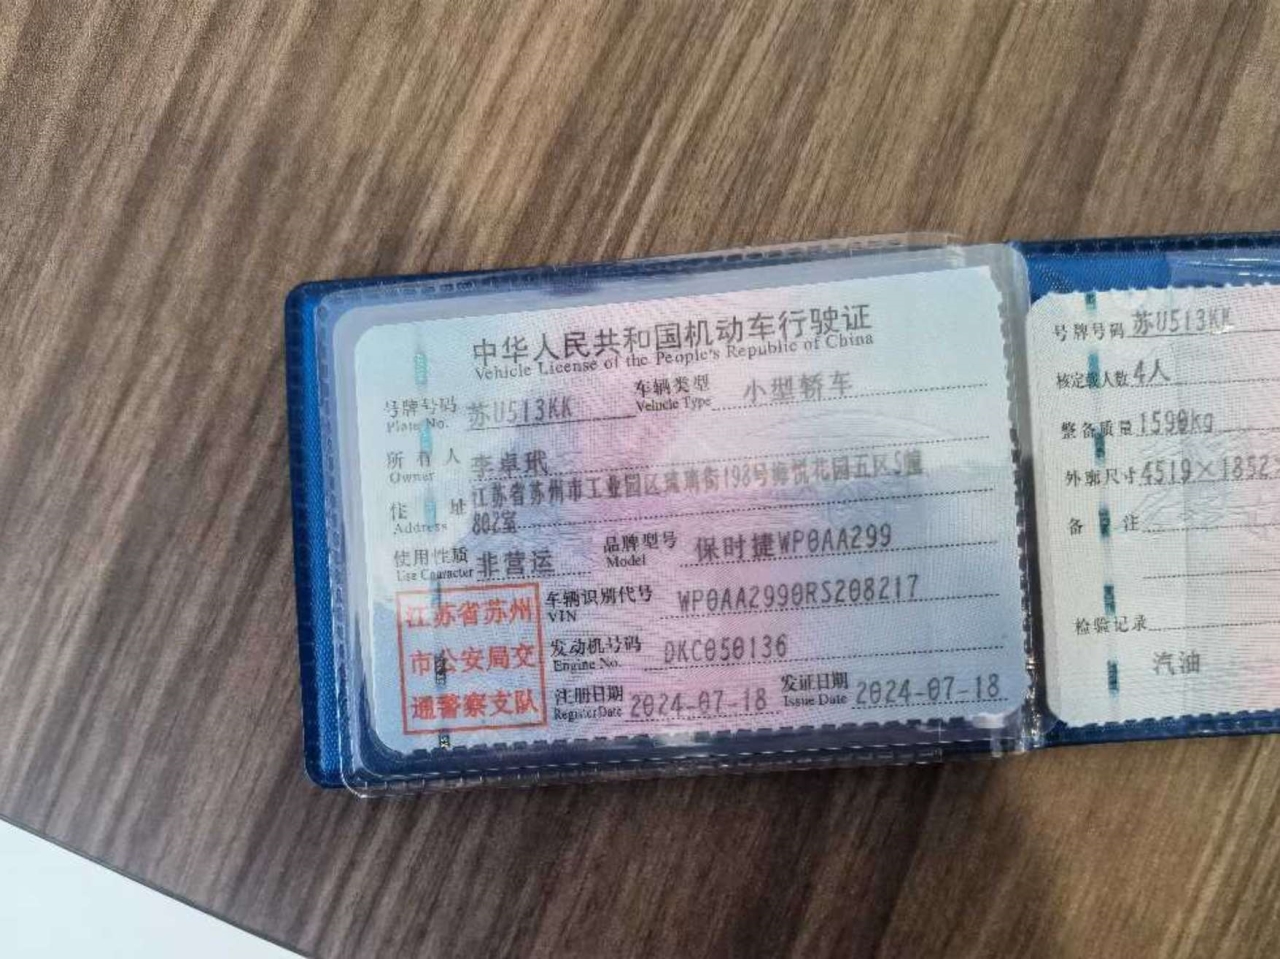 中华人民共和国机动车行驶证
Vehicle License of the People's Republic of China
号牌号码 苏U513KK 车辆类型 小型轿车
Plate No. Vehicle Type
所有人 李卓玳
Owner
住址 江苏省苏州市工业园区琉璃街198号海悦花园五区5幢
Address 802室
使用性质 非营运 品牌型号 保时捷WP0AA299
Use Character Model
江苏省苏州
市公安局交
通警察支队
车辆识别代号 WP0AA2990RS208217
VIN
发动机号码 DKC050136
Engine No.
注册日期 2024-07-18 发证日期 2024-07-18
Register Date Issue Date
号牌号码 苏U513KK
核定载人数 4人
整备质量 1590kg
外廓尺寸 4519×1852
备注
检验记录
汽油